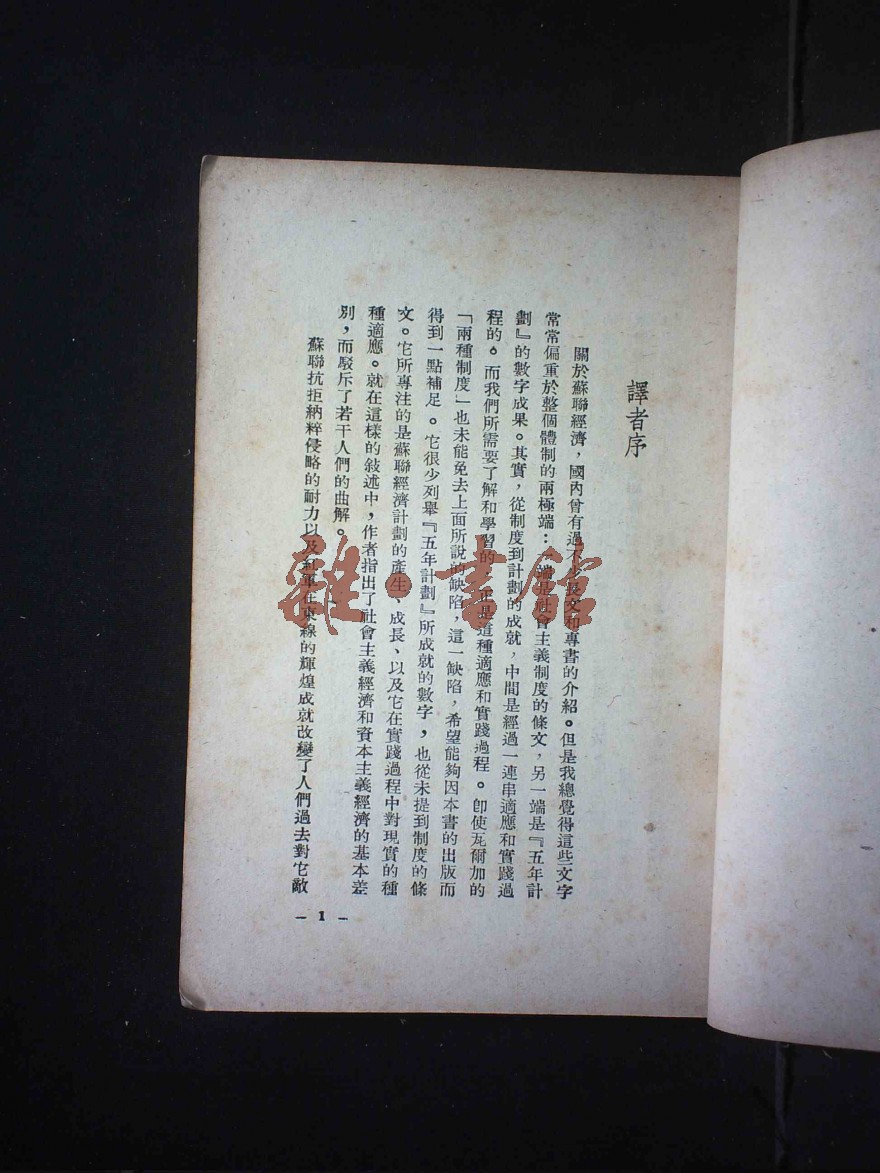 譯者序
關於蘇聯經濟，國內曾有過不少長文和專書的介紹。但是我總覺得這些文字
常常偏重於整個體制的兩極端：一端是社會主義制度的條文，另一端是『五年計
劃』的數字成果。其實，從制度到計劃的成就，中間是經過一連串適應和實踐過
程的。而我們所需要了解和學習的，正是這種適應和實踐過程。即使瓦爾加的
「兩種制度」也未能免去上面所說的缺陷，這一缺陷，希望能夠因本書的出版而
得到一點補足。它很少列舉『五年計劃』所成就的數字，也從未提到制度的條
文。它所專注的是蘇聯經濟計劃的產生、成長、以及它在實踐過程中對現實的種
種適應。就在這樣的敍述中，作者指出了社會主義經濟和資本主義經濟的基本差
別，而駁斥了若干人們的曲解。
蘇聯抗拒納粹侵略的耐力以及紅軍在東線的輝煌成就改變了人們過去對它敵
— 1 —
雜·書館